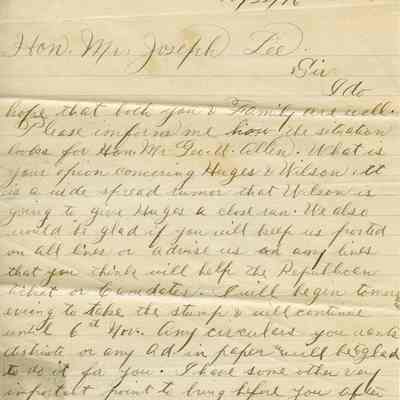 Hon. Mr. Joseph Lee.
Sir
I do
hope that both you & Family are well.
Please imform me how the situation
looks for Hon. Mr Geo. W. Allen. What is
your opion concering Huges & Wilson. It
is a wide spread rumor that Wilson is
going to give Huges a close ran. We also
would be glad if you will keep us posted
on all lines or advise us on any lines
that you think will help the Republican
ticket or Canedates. I will begin tomorr
eveing to take the stump & will continue
until 6th Nov. Any circulars you wants
districte or any Ad in paper will be glad
to do it for you. I have some other very
important point to bring before you after